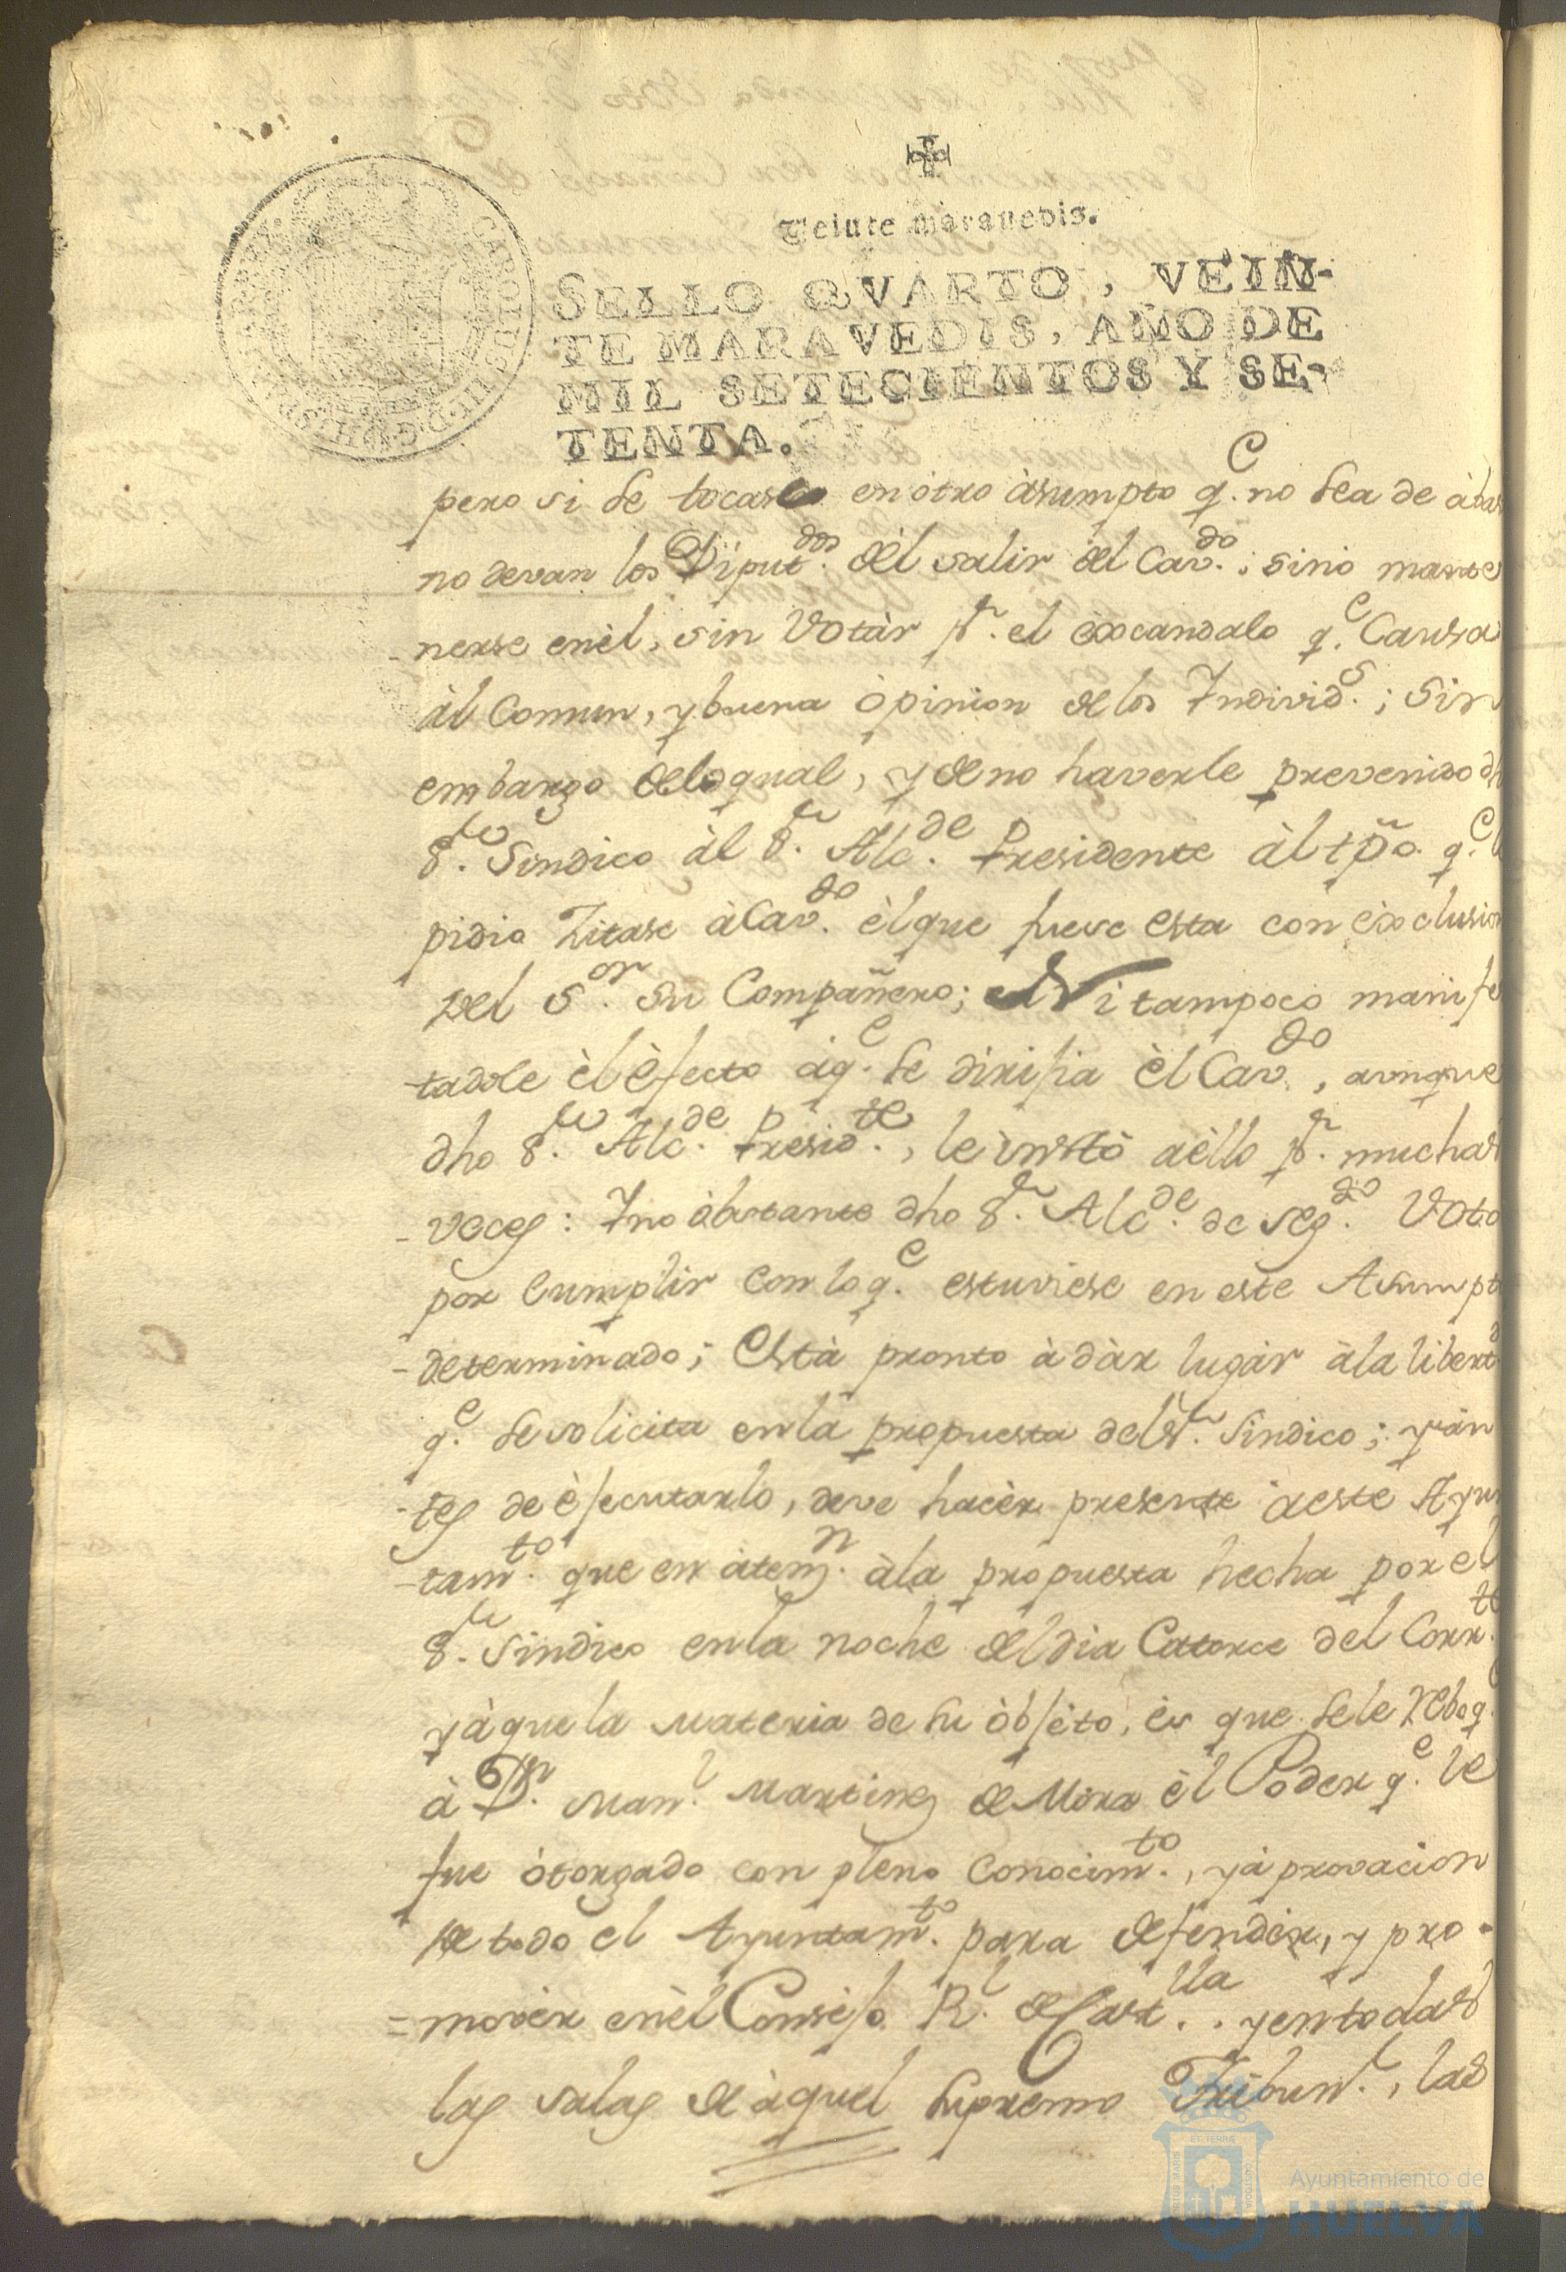 Veinte maravedis.
SELLO QVARTO, VEIN-
TE MARAVEDIS, AÑO DE
MIL SETECIENTOS Y SE-
TENTA.
CAROLUS III D G HISP
pero si se tocase en òtro àsumpto q.e no sea de
no devan los Diput.dos del salir del Cav.do; sino mante
nerse enèl, sin Votàr p.r el èxcandalo q.e Causa
àl Comun, y buena òpinion de los Individ.s; Sin
embargo deloqual, y de no haverle prevenido
S.r Sindico àl S.r Alc.de Presidente àl tpõ. q.e
pidio Zitase àCav.do èlque fuese esta con èxclusion
del S.or su Compañero; Ni tampoco manifes
tadole èl èfecto àq.e se dirijia èl Cav.do, aunque
dho S.r Alc.de Presid.te, le instò aèllo p.r muchas
veces: Y no òbstante dho S.r Alc.de de seg.do Voto
por Cumplir con lo q.e estuviese en este Asumpto
determinado; Està pronto à dàr lugàr àla libert.d
q.e se solicita en la propuesta del S.r Sindico; y àn
tes de èjecutarlo, deve hacèr presente àeste Ayun
tam.to que en àtenz.n àla propuesta hecha por el
S.r Sindico en la noche del dia Catorce del Corr.te
yà que la Materia de su òbjèto, ès que sele reboq.e
à D.n Man.l Martinez de Mora èl Poder q.e le
fue òtorgado con pleno Conocim.to, y àprovacion
de todo el Ayuntam.to para defendèr, y pro-
=movèr enèl Consejo R.l de Cast.lla y en todas
las salas de àquel Supremo Tribun.l, las
Ayuntamiento de
HUELVA